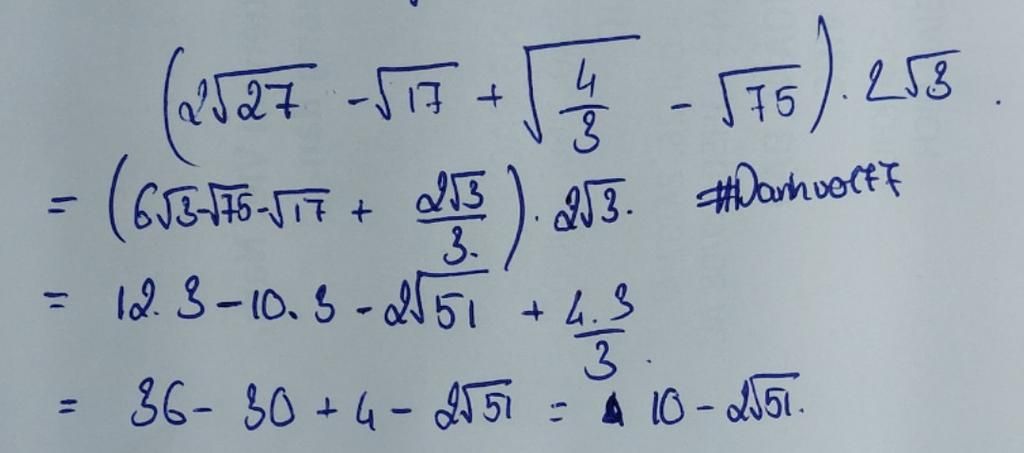 (2√27 - √17 + √(4/3) - √75) . 2√3 .
= (6√3-√75-√17 + 2√3/3.) . 2√3.
= 12.3-10.3-2√51 + 4.3/3.
= 36- 30 + 4 - 2√51 = 10 - 2√51.